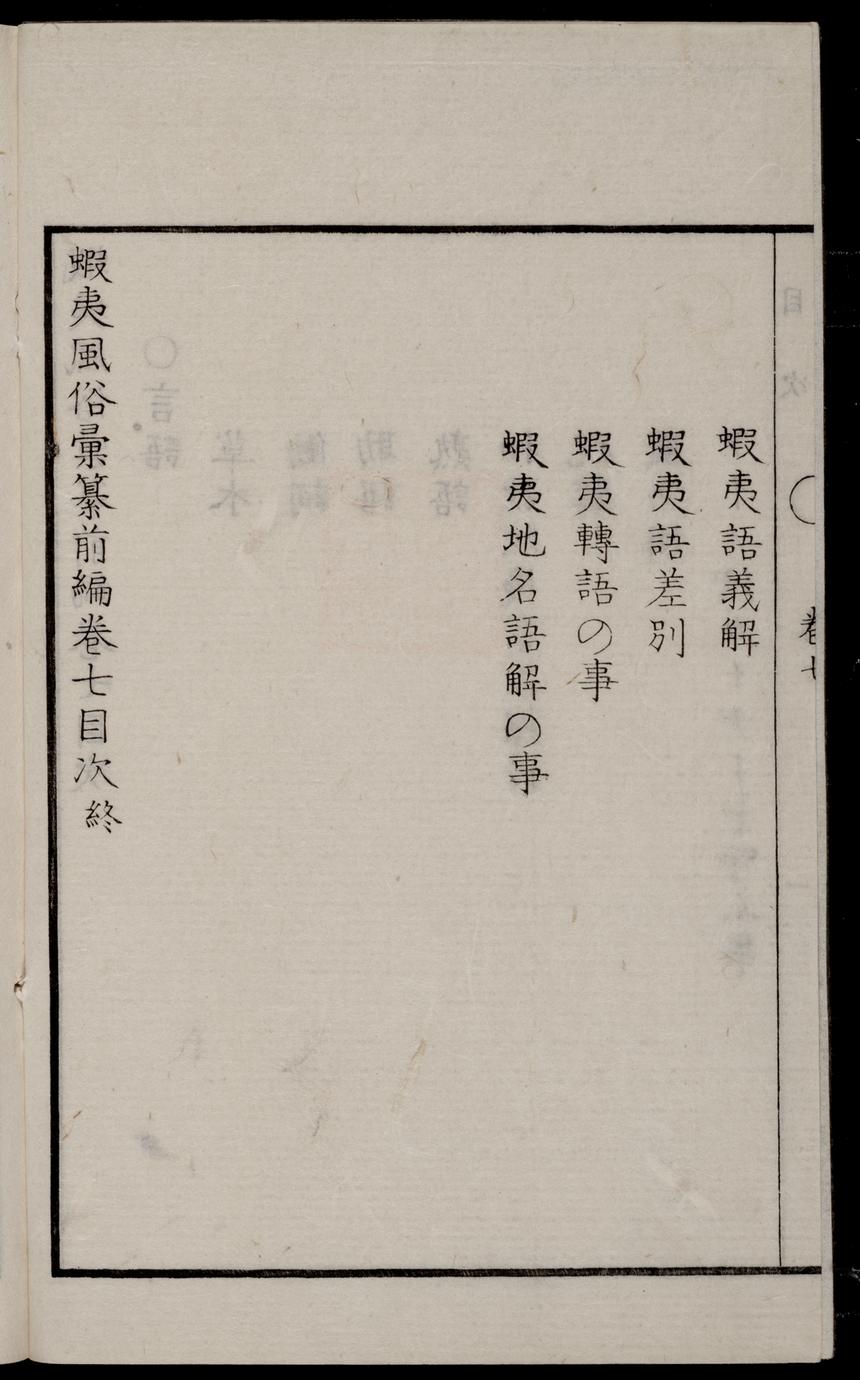 卷七
蝦夷語義解
蝦夷語差別
蝦夷轉語の事
蝦夷地名語解の事
蝦夷風俗彙纂前編卷七目次終